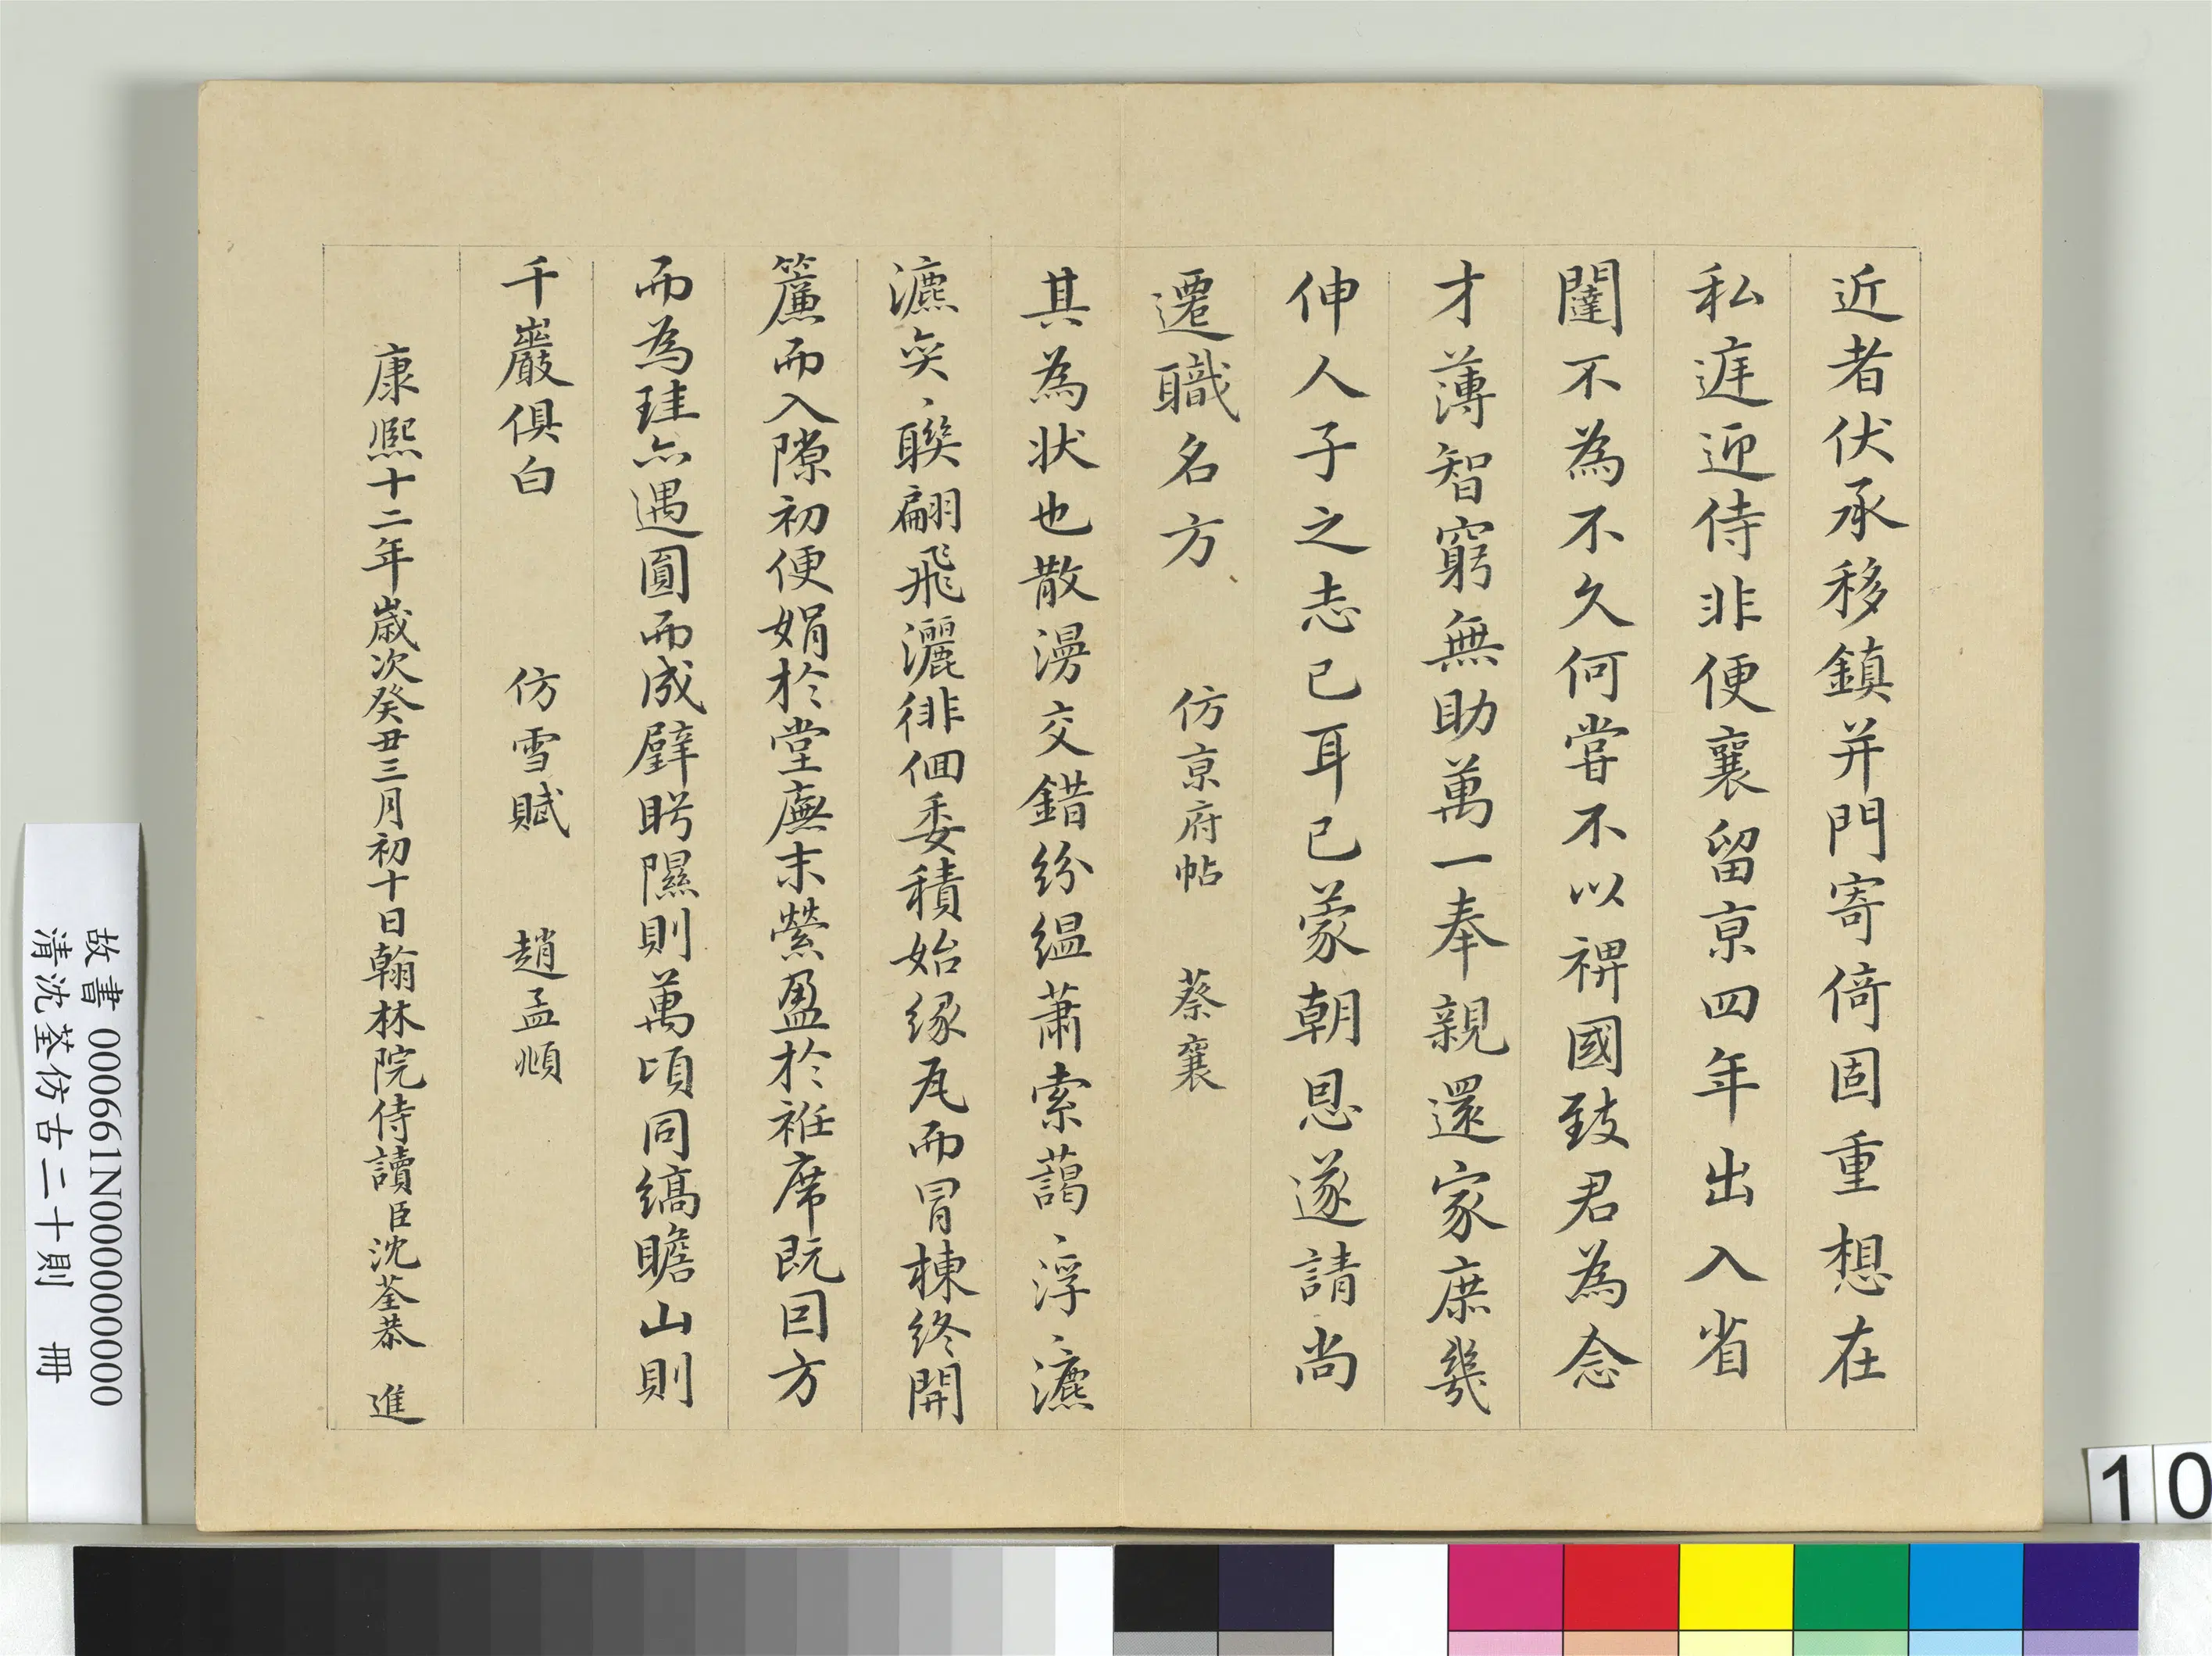 近者伏承移鎮并門寄倚固重想在
私遅迎侍非便襄留京四年出入省
闥不為不久何嘗不以裨國致君為念
才薄智窮無助萬一奉親還家庶幾
伸人子之志已耳已蒙朝恩遂請尚
遷職名方 仿京府帖 蔡襄
其為状也散漫交錯紛緼蕭索藹、浮、瀌
瀌奕、聯翩飛灑徘徊委積始緣甍而冒棟終開
簾而入隙初便娟於堂廡末縈盈於袵席既因方
而為珪亦遇圓而成璧眄隰則萬頃同縞瞻山則
千巖俱白 仿雪賦 趙孟頫
康熙十二年歲次癸丑三月初十日翰林院侍讀臣沈荃恭 進
故書 000661N000000000
清沈荃仿古二十則 冊
10